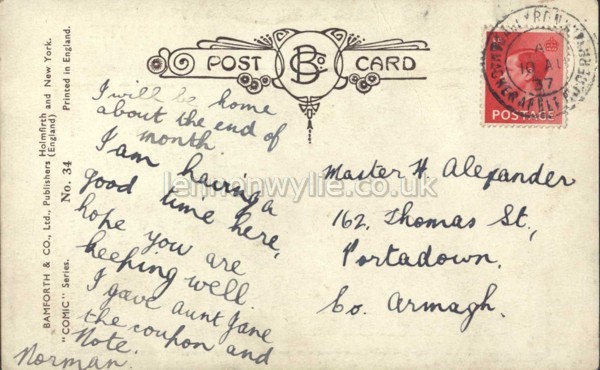 POST CARD
B Co
I will be home
about the end of
month.
I am having a
good time here,
hope you are
keeping well.
I gave aunt Jane
the coupon and
Note.
Norman.
Master H. Alexander
162, Thomas St.,
Portadown,
Co. Armagh.
POSTAGE
19 AU
37
lennonwylie.co.uk
BAMFORTH & CO., Ltd., Publishers Holmfirth and New York.
(England) Printed in England.
"COMIC" Series. No. 34